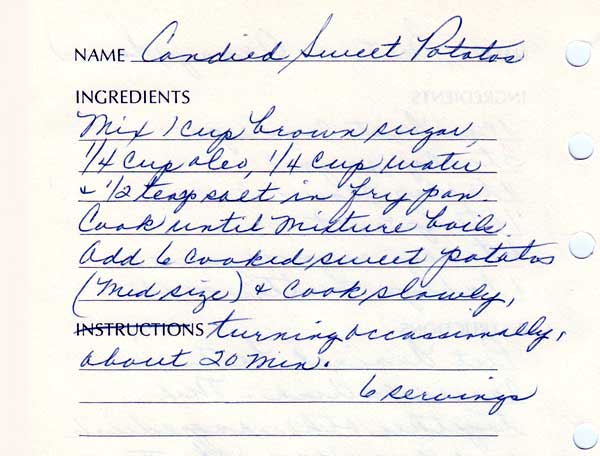 NAME Candied Sweet Potatos
INGREDIENTS
Mix 1 cup brown sugar,
1/4 cup oleo, 1/4 cup water
& 1/2 teasp salt in fry pan.
Cook until mixture boils.
Add 6 cooked sweet potatos
(med size) & cook slowly,
INSTRUCTIONS turning occassionally,
about 20 min.
6 servings